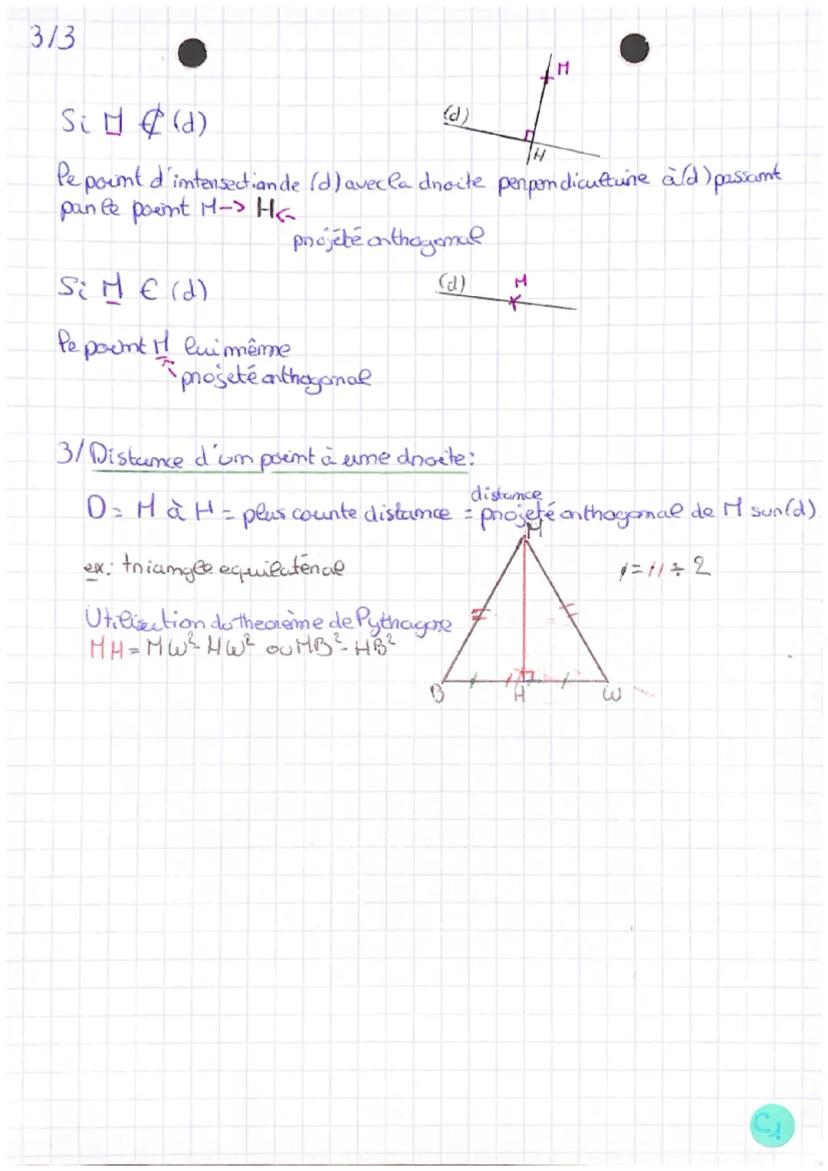 3/3
M
Si M ∉ (d)
(d)
H
Le point d'intersection de (d) avec la droite perpendiculaire à (d) passant
par le point M -> H <-
projeté orthogonal
Si M ∈ (d)
(d) M
Le point M lui même
projeté orthogonal
3/ Distance d'un point à une droite:
D = M à H = plus courte distance = distance projeté orthogonal de M sur (d)
M
ex: triangle equilatéral
/ = // ÷ 2
Utilisation du theorème de Pythagore
MH = MW² - HW² ou MB² - HB²
B H W
C1